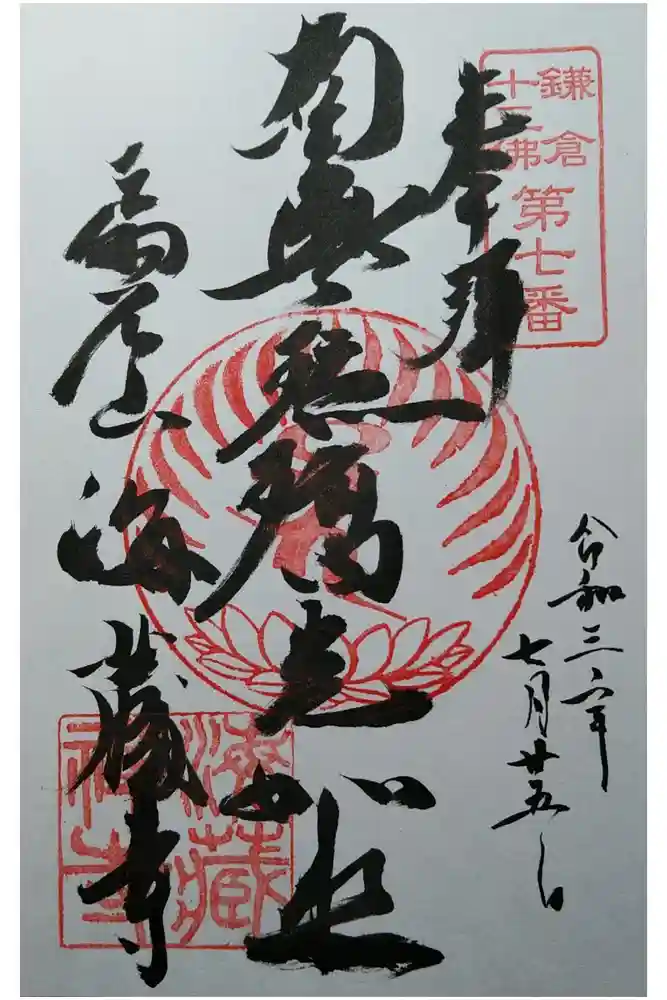 鎌倉
十三佛
第七番
奉拝
南無瑠璃光如来
扇谷山海蔵寺
令和三年
七月廿五日
海藏
禅寺